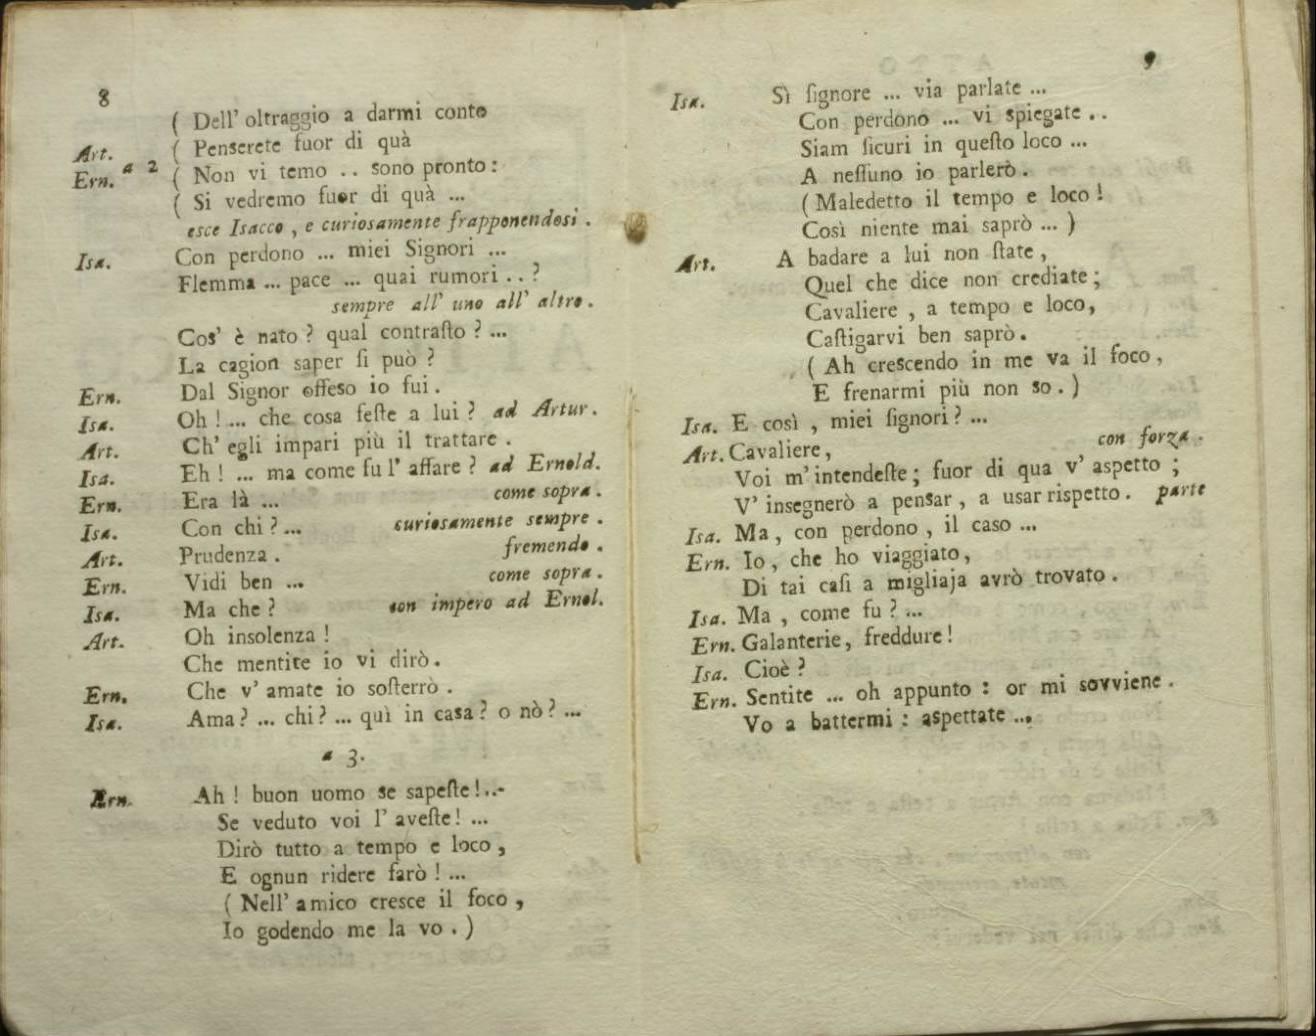 8
( Dell' oltraggio a darmi conto
Art. ( Penserete fuor di quà
Ern. a 2 ( Non vi temo .. sono pronto:
( Si vedremo fuor di quà ...
esce Isacco, e curiosamente frapponendosi.
Isa. Con perdono ... miei Signori ...
Flemma ... pace ... quai rumori ..?
sempre all' uno all' altro.
Cos' è nato? qual contraſto? ...
La cagion saper ſi può?
Ern. Dal Signor offeso io fui.
Isa. Oh! ... che cosa feſte a lui? ad Artur.
Art. Ch' egli impari più il trattare.
Isa. Eh! ... ma come fu l' affare? ad Ernold.
Ern. Era là ... come sopra.
Isa. Con chi? ... curiosamente sempre.
Art. Prudenza. fremendo.
Ern. Vidi ben ... come sopra.
Isa. Ma che? con impero ad Ernol.
Art. Oh insolenza!
Che mentite io vi dirò.
Ern. Che v' amate io soſterrò.
Isa. Ama? ... chi? ... quì in casa? o nò? ...
a 3.
Ern. Ah! buon uomo se sapeſte!...
Se veduto voi l' aveſte! ...
Dirò tutto a tempo e loco,
E ognun ridere farò! ...
( Nell' amico cresce il foco,
Io godendo me la vo.)
9
Isa. Sì ſignore ... via parlate ...
Con perdono ... vi spiegate ..
Siam ſicuri in queſto loco ...
A neſſuno io parlerò.
(Maledetto il tempo e loco!
Così niente mai saprò ... )
Art. A badare a lui non ſtate,
Quel che dice non crediate;
Cavaliere, a tempo e loco,
Caſtigarvi ben saprò.
( Ah crescendo in me va il foco,
E frenarmi più non so.)
Isa. E così, miei ſignori? ...
Art. Cavaliere, con forza.
Voi m' intendeſte; fuor di qua v' aspetto;
V' insegnerò a pensar, a usar rispetto. parte
Isa. Ma, con perdono, il caso ...
Ern. Io, che ho viaggiato,
Di tai caſi a migliaja avrò trovato.
Isa. Ma, come fu? ...
Ern. Galanterie, freddure!
Isa. Cioè?
Ern. Sentite ... oh appunto: or mi sovviene.
Vo a battermi: aspettate ...